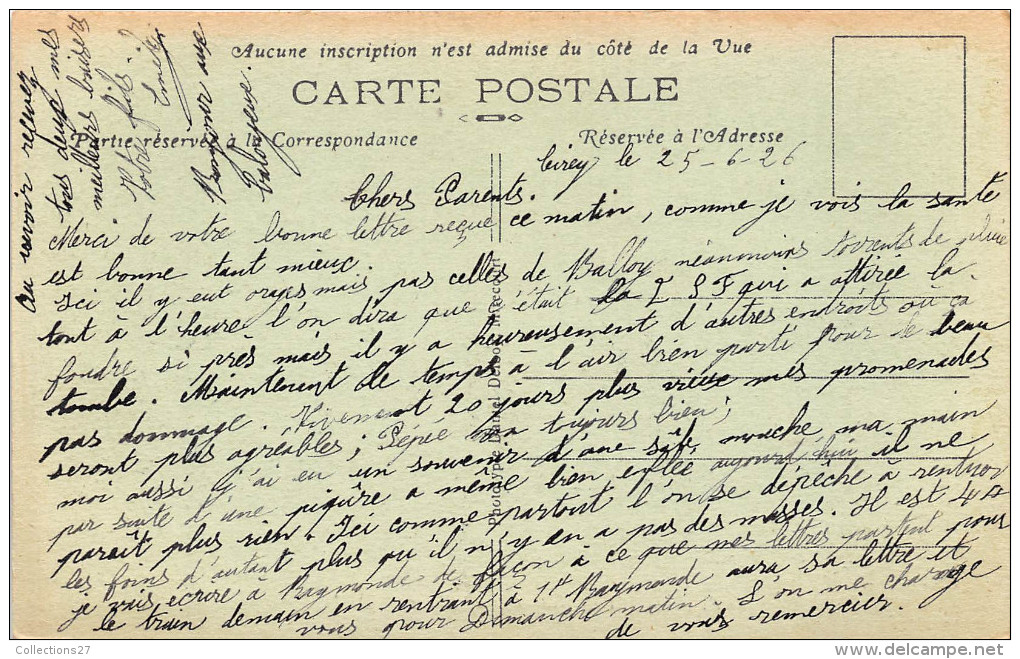 Aucune inscription n'est admise du côté de la Vue
CARTE POSTALE
Partie réservée à la Correspondance
Réservée à l'Adresse
Cirey le 25-6-26
Chers Parents.
Merci de votre bonne lettre reçue ce matin, comme je vois la santé
est bonne tant mieux.
Ici il y eut orages mais pas celles de Balloy néanmoins torrents de pluie
tout à l'heure l'on dira que c'était la T S F qui a attirée la
foudre si près mais il y a heureusement d'autres endroits où ça
tombe. Maintenant le temps à l'air bien parti pour le beau
pas dommage. Vivement 20 jours plus vieux mes promenades
seront plus agréables; Pépée va tujours bien;
moi aussi j'ai eu un souvenir d'une sâle mouche ma main
par suite d'une piqûre a même bien enflée aujourd'hui il ne
paraît plus rien. Ici comme partout l'on se dépêche à rentrer
les foins d'autant plus qu'il n'y en a pas des masses. Il est 4h
je vais écrire à Raymonde de façon à ce que mes lettres partent pour
le train demain en rentrant à 1h Raymonde aura sa lettre et
vous pour Dimanche matin. L'on me charge
de vous remercier.
Au revoir recevez
tous deux mes
meilleurs baisers
Votre fils
Bonjour aux
Photypie Daniel Delboy, Mirecourt
Collections27
www.delcampe.net